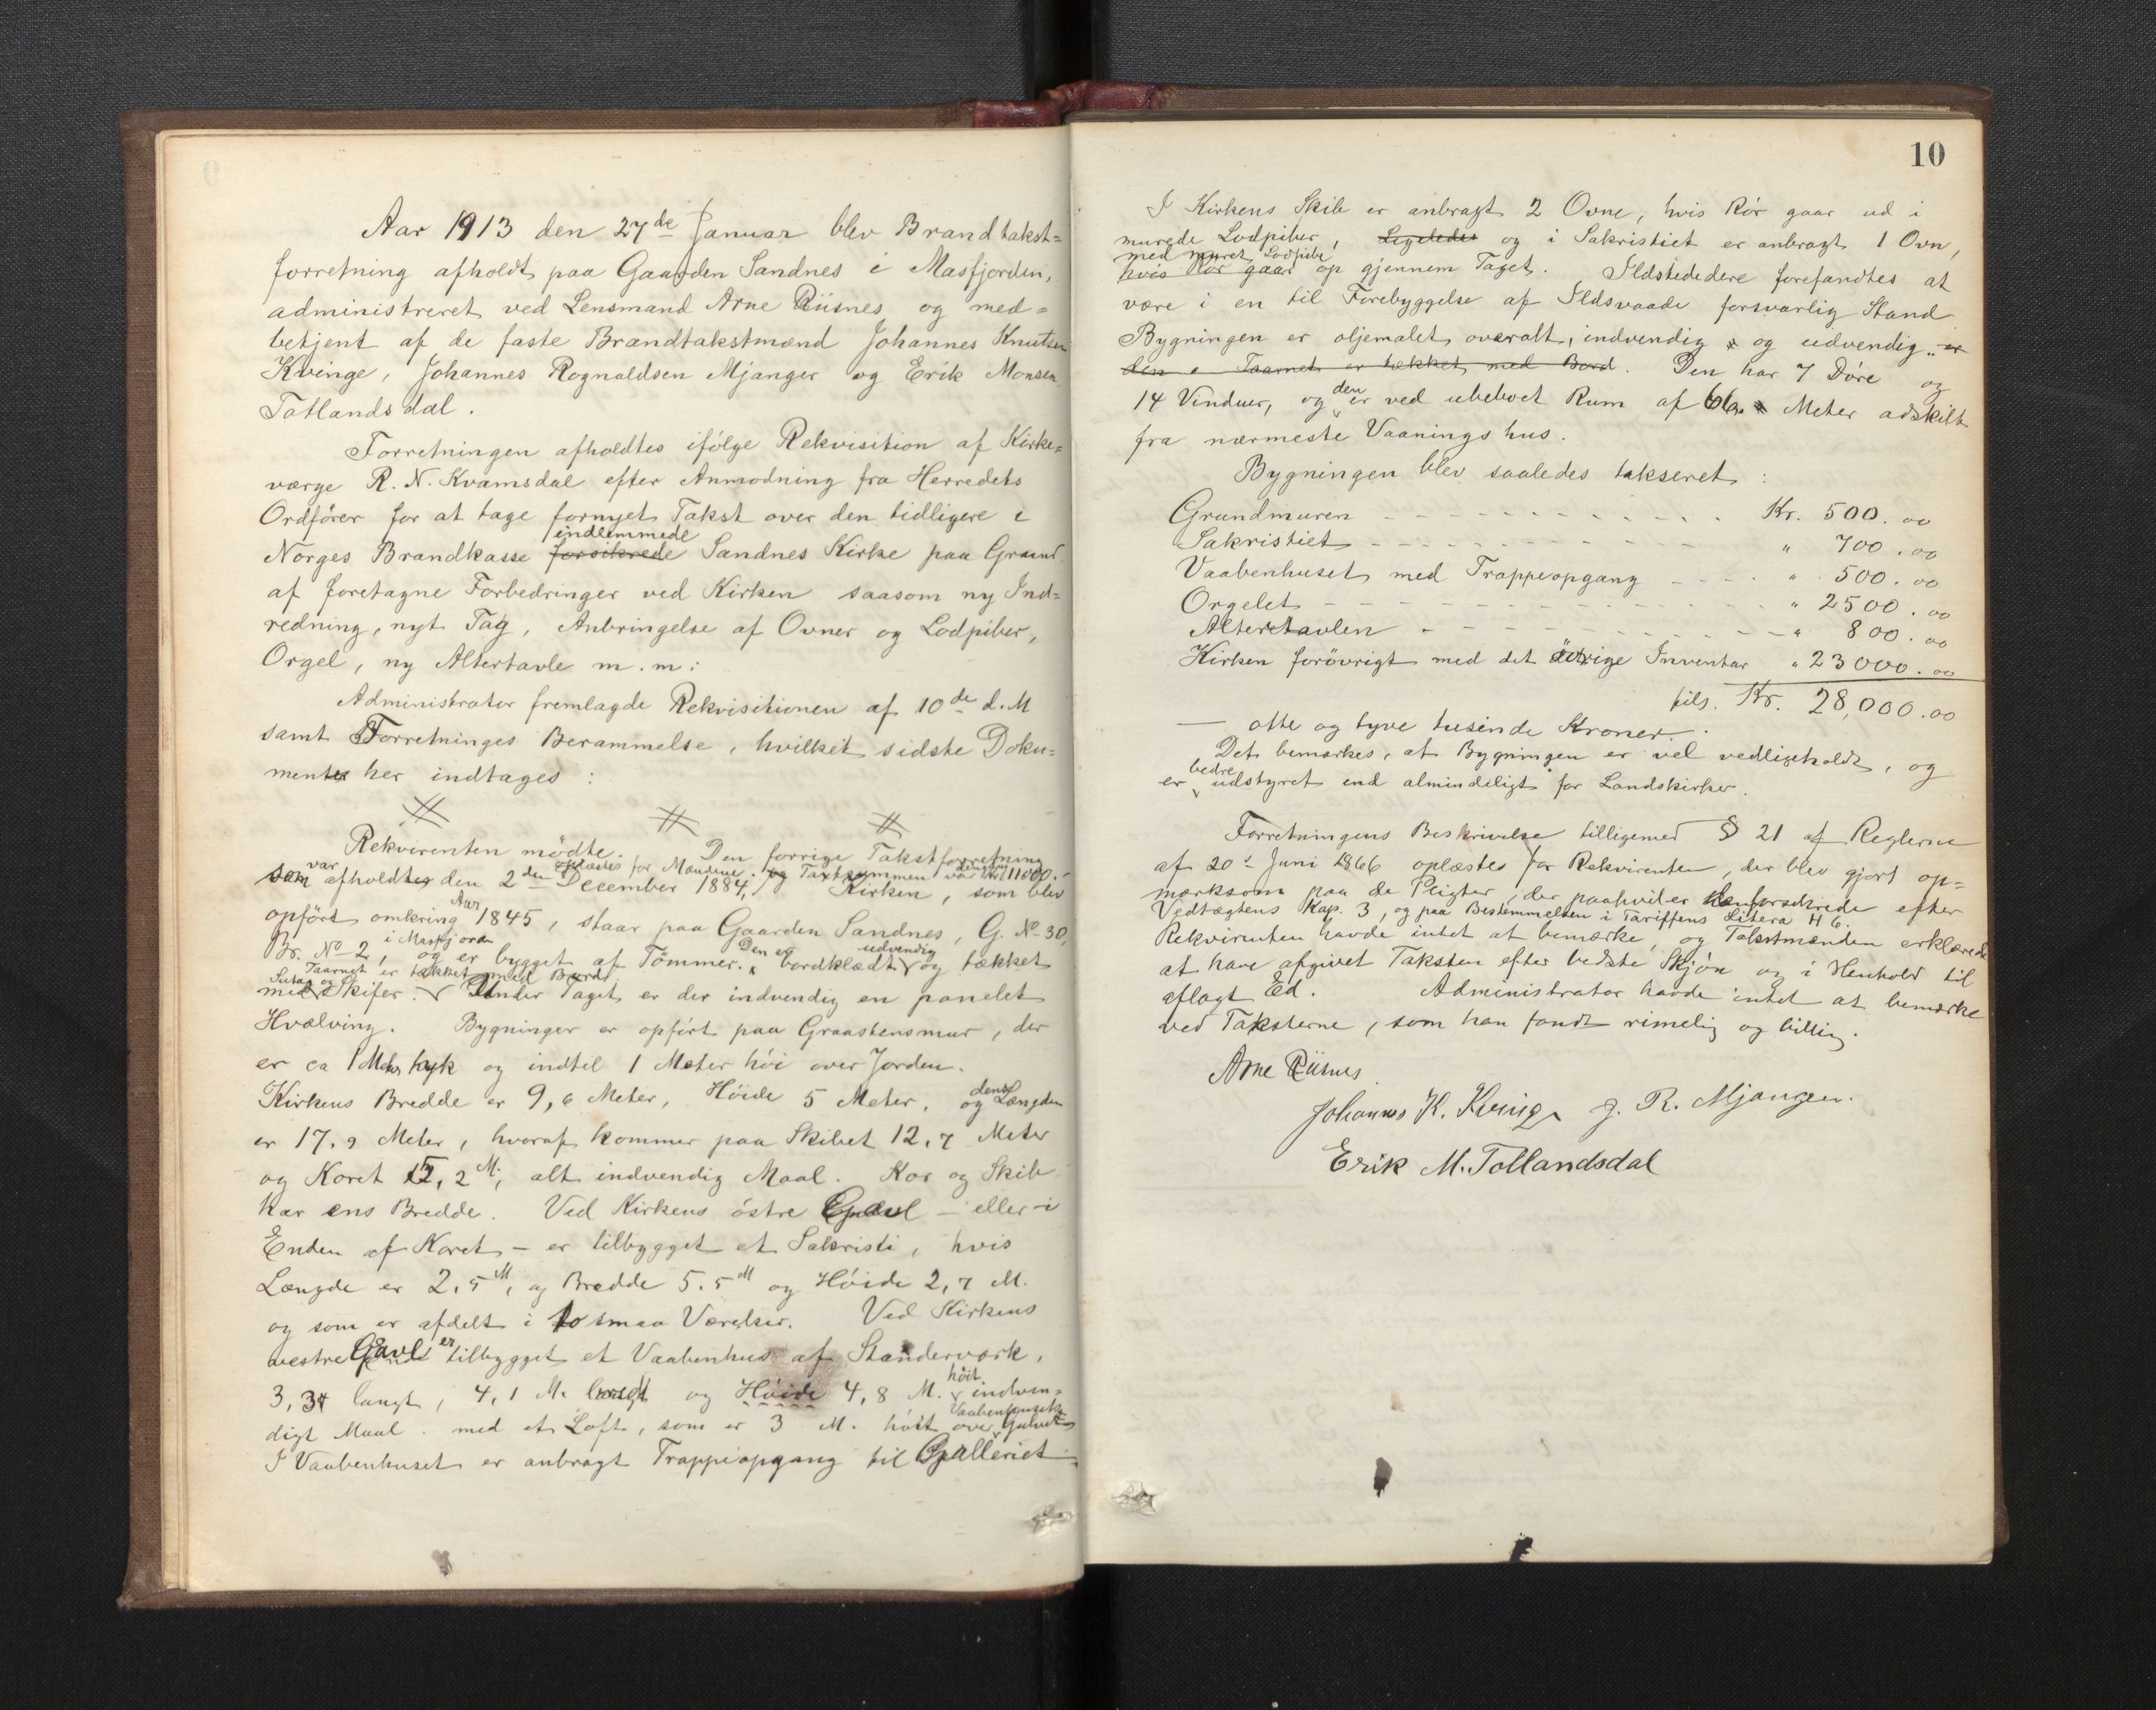 Aar 1913 den 27de Januar blev Brandtakst=
forretning afholdt paa Gaarden Sandnes i Masfjorden,
administreret ved Lensmand Arne Riisnes og med=
betjent af de faste Brandtakstmænd Johannes Knutsen
Kvinge, Johannes Rognaldsen Mjanger og Erik Monsen
Totlandsdal.
Forretningen afholdtes ifölge Rekvisition af Kirke=
værge R. N. Kvamsdal efter Anmodning fra Herredets
Ordförer for at tage fornyet Takst over den tidligere i
indlemmede
Norges Brandkasse forsikrede Sandnes Kirke paa Grund
af foretagne Forbedringer ved Kirken saasom ny Ind=
redning, nyt Tag, Anbringelse af Ovner og Lodpiber,
Orgel, ny Altertavle m. m.
Administrator fremlagde Rekvisitionen af 10de d. M
samt Forretninges Berammelse, hvilket sidste Doku=
ment her indtages:
Rekvirenten mödte. Den forrige Takstforretning
var oplæstes for Mændene. og Taxtsummen var 11000.-
som afholdtes den 2den December 1884, Kirken, som blev
Aar
opfört omkring 1845, staar paa Gaarden Sandnes, G. No 30,
i Masfjorden Den er udvendig
Br. No 2, og er bygget af Tömmer. bordklædt og tækket
Taarnet er tækket med Bord
Sutag og
med Skifer. Under Taget er der indvendig en panelet
Hvælving. Bygninger er opfört paa Graastensmur, der
er ca 1 Meter tyk og indtil 1 Meter höi over Jorden.
Kirkens Bredde er 9,6 Meter, Höide 5 Meter, og dens Længden
er 17,9 Meter, hvoraf kommer paa Skibet 12,7 Meter
og Koret 5,2 M, alt indvendig Maal. Kor og Skib
har ens Bredde. Ved Kirkens östre Gavl – eller i
Enden af Koret – er tilbygget et Sakristi, hvis
Længde er 2,5 M, og Bredde 5,5 M og Höide 2,7 M.
og som er afdelt i to smaa Værelser. Ved Kirkens
vestre Gavl er tilbygget et Vaabenhus af Standerværk,
höit
3,34 langt, 4,1 M. bredt og Höide 4,8 M. indven=
Vaabenhusets
digt Maal. med et Loft, som er 3 M. höit over Gulvet
I Vaabenhuset er anbragt Trappeopgang til Galleriet
10
I Kirkens Skib er anbragt 2 Ovne, hvis Rör gaar ud i
murede Lodpiber, Ligeledes og i Sakristiet er anbragt 1 Ovn,
med muret Lodpibe
hvis Rör gaar op gjennem Taget. Ildstederne forefandtes at
være i en til Forebyggelse af Ildsvaade forsvarlig Stand
Bygningen er oljemalet overalt, indvendig og udvendig er
den Taarnet er tækket med Bord. Den har 7 Döre og
14 Vinduer, og den er ved ubeboet Rum af 66 Meter adskilt
fra nærmeste Vaaningshus.
Bygningen blev saaledes takseret:
Grundmuren Kr. 500.00
Sakristiet " 700.00
Vaabenhuset med Trappeopgang " 500.00
Orgelet " 2500.00
Altertavlen " 800.00
Kirken forövrigt med det övrige Inventar " 23000.00
tils. Kr. 28,000.00
— otte og tyve tusinde Kroner.
Det bemærkes, at Bygningen er vel vedligeholdt, og
bedre
er udstyret end almindeligt for Landskirker.
Forretningens Beskrivelse tilligemed § 21 af Reglerne
af 20de Juni 1866 oplæstes for Rekvirenten, der blev gjort op=
mærksom paa de Pligter, der paahviler efter
Vedtægtens Kap. 3, og paa Bestemmelsen i Tariffens Litera H 6.
Rekvirenten havde intet at bemærke, og Takstmænden erklærede
at have afgivet Taksten efter bedste Skjön og i Henhold til
aflagt Ed. Administrator havde intet at bemærke
ved Taksterne, som han fandt rimelig og billig.
Arne Riisnes
Johannes K. Kvinge J. R. Mjanger.
Erik M. Totlandsdal